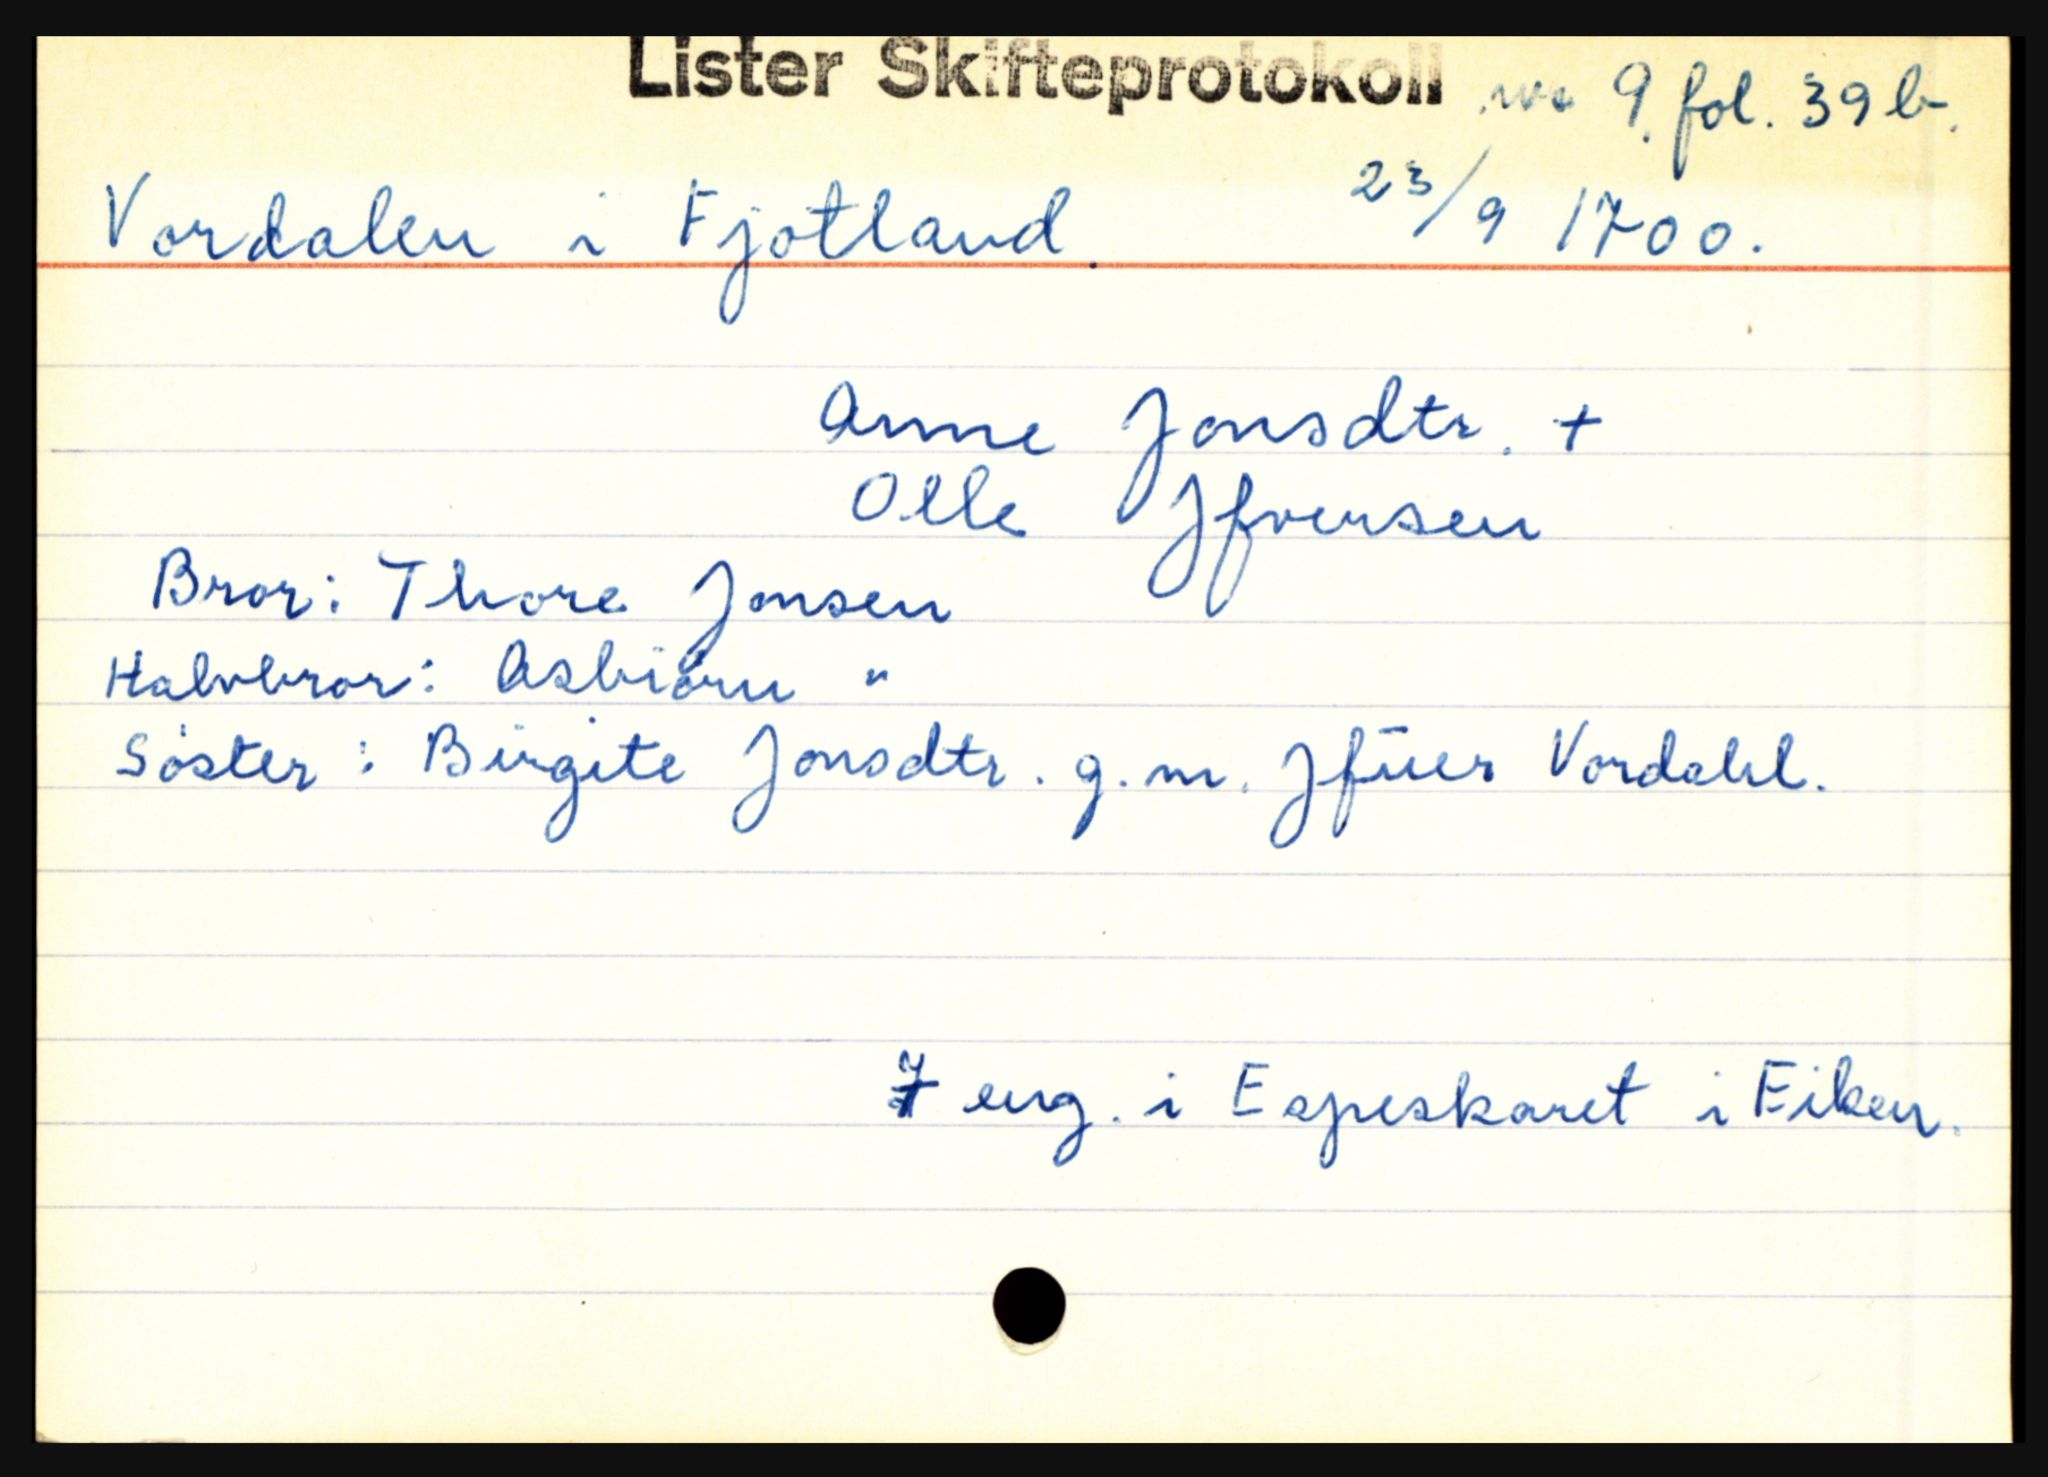 Lister Skifteprotokoll nr 9. fol. 39 b.
Vordalen i Fjotland. 23/9 1700.
Anne Jonsdtr. +
Olle Jfversen
Bror: Thore Jonsen
Halvbror: Asbiørn "
Søster: Birgite Jonsdtr. g.m. Jfüer Vordahl.
7 eng. i Espeskaret i Eiken.